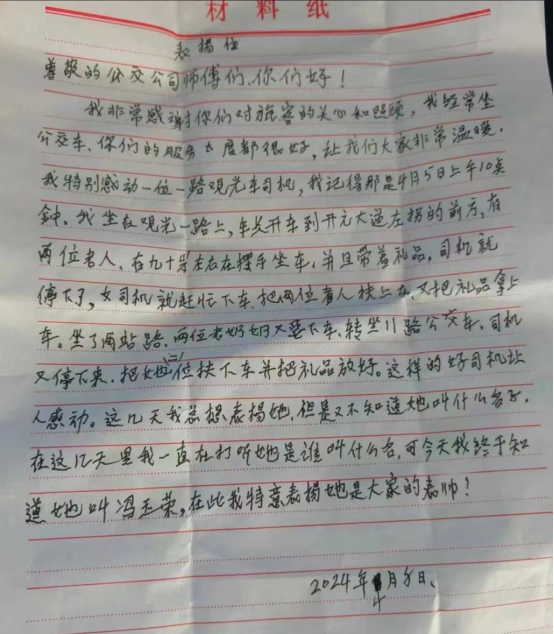 材料纸
表揚信
尊敬的公交公司师傅们、你们好！
我非常感谢你们对旅客的关心和照顾，我经常坐
公交车、你们的服务太度都很好，让我们大家非常温暖．
我特别感动一位一路观光车司机，我记得那是4月5日上午10奌
鈡、我坐在观光一路上，车长开车到开元大道左拐的前方，有
两位老人、在九十岁左右在摆手坐车，并且带着礼品，司机就
停下了，女司机就赶忙下车、把两位老人扶上车、又把礼品拿上
车。坐了两站路、两位老奶奶又要下车、转坐11路公交车．司机
又停下来、把她二位扶下车并把礼品放好。这样的好司机让
人感动。这几天我总想表揚她，但是又不知道她叫什么名子．
在这几天里我一直在打听她是谁叫什么名，可今天我终于知
道她叫冯玉荣，在此我特意表揚她是大家的表帅！
2024年4月8日、